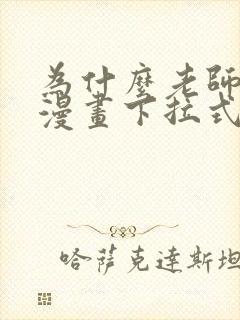 為什麼老師
漫畫下拉式
哈薩克達斯坦